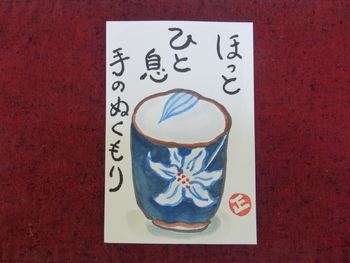 ほっと
ひと
息
手のぬくもり
正